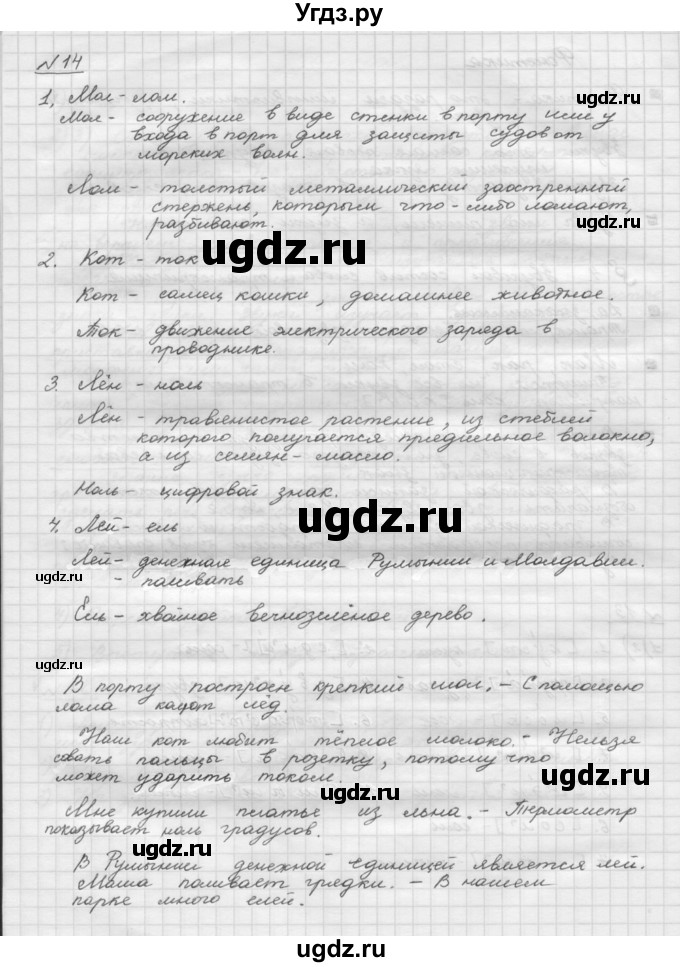 Угдз.ру
№14
1, Мол - лом.
Мол - сооружение в виде стенки в порту или у
входа в порт для защиты судов от
морских волн.
ugdz.ru
Лом - толстый металлический заостренный
стержень, которым что-либо ломают,
разбивают.
ugdz.ru
2. Кот - ток
ugdz.ru
Кот - самец кошки, домашнее животное.
Ток - движение электрического заряда в
проводнике.
ugdz.ru
3. Лён - ноль
Лён - травянистое растение, из стеблей
которого получается прядильное волокно,
а из семян - масло.
Ноль - цифровой знак.
ugdz.ru
4. Лей - ель
Лей - денежная единица Румынии и Молдавии.
- поливать
ugdz.ru
Ель - хвойное вечнозелёное дерево.
ugdz.ru
В порту построен крепкий мол. - С помощью
лома колют лёд.
Наш кот любит тёплое молоко. - Нельзя
совать пальцы в розетку, потому что
может ударить током.
ugdz.ru
Мне купили платье из льна. - Термометр
показывает ноль градусов.
ugdz.ru
В Румынии денежной единицей является лей.
Мама поливает грядки. - В нашем
парке много елей.
ugdz.ru